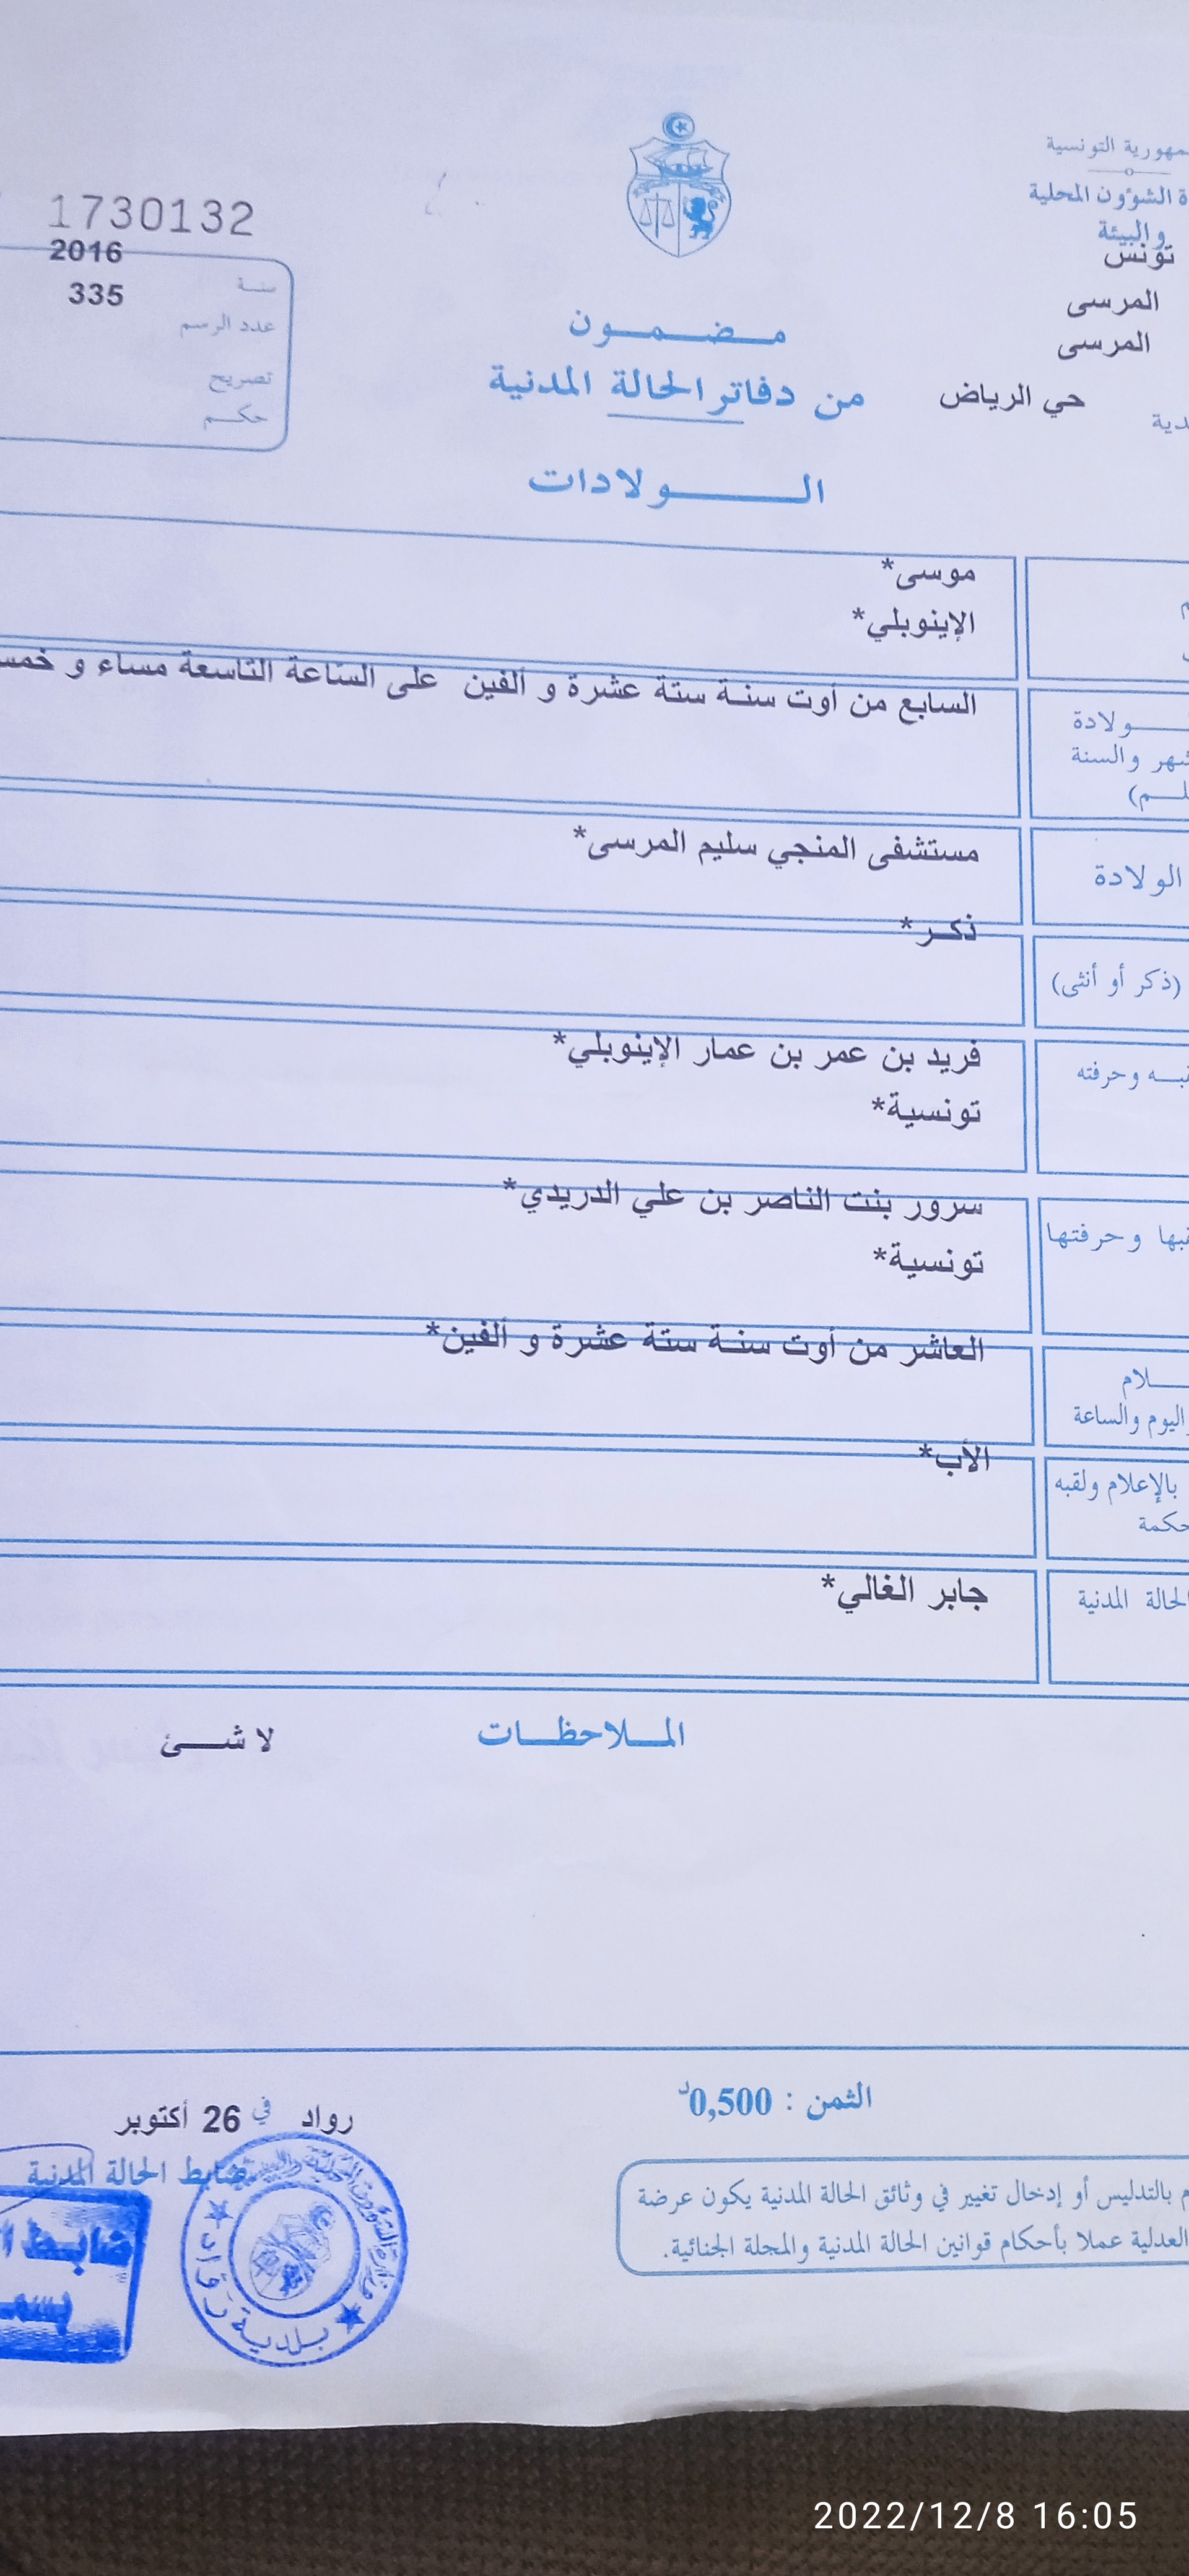 التونسية
الشؤون المحلية
والبيئة
تونس
المرسى
المرسى
حي الرياض
1730132
2016
سنة
335
عدد الرسم
تصريح
حكم
مضمون
من دفاتر الحالة المدنية
الولادات
موسى*
الإينوبلي*
السابع من أوت سنة ستة عشرة و ألفين على الساعة التاسعة مساء و
ولادة
والسنة
مستشفى المنجي سليم المرسى*
الولادة
ذكر*
(ذكر أو أنثى)
فريد بن عمر بن عمار الإينوبلي*
وحرفته
تونسية*
سرور بنت الناصر بن علي الدريدي*
وحرفتها
تونسية*
العاشر من أوت سنة ستة عشرة و ألفين*
اليوم والساعة
الأب*
بالإعلام ولقبه
جابر الغالي*
الحالة المدنية
الملاحظات
لا شئ
الثمن : 0,500د
رواد في 26 أكتوبر
ضابط الحالة المدنية
بالتدليس أو إدخال تغيير في وثائق الحالة المدنية يكون عرضة
العدلية عملا بأحكام قوانين الحالة المدنية والمجلة الجنائية.
بلدية رواد
2022/12/8 16:05